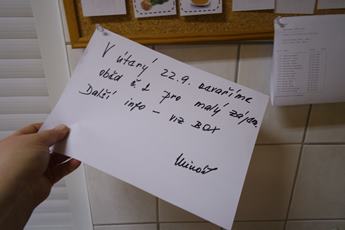 V úterý 22.9. nevaříme
oběd č. 2 pro malý zájem.
Další info - viz BOX